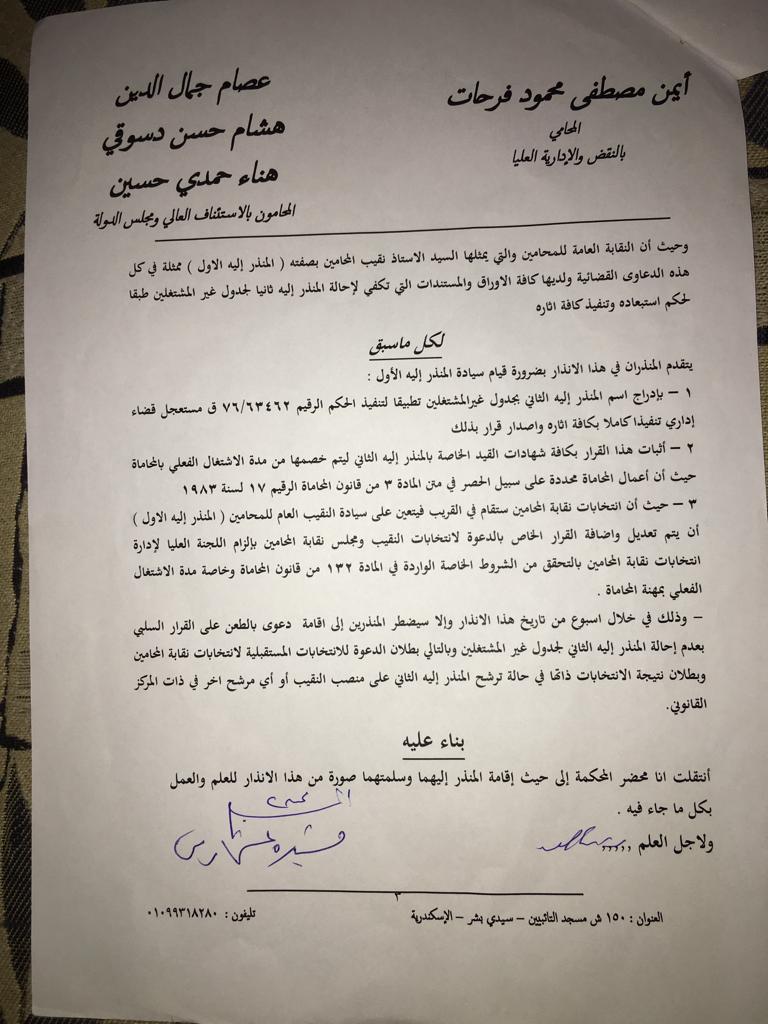 أيمن مصطفى محمود فرحات
المحامي
بالنقض والإدارية العليا
عصام جمال الدين
هشام حسن دسوقي
هناء حمدي حسين
المحامون بالاستئناف العالي ومجلس الدولة
وحيث أن النقابة العامة للمحامين والتي يمثلها السيد الاستاذ نقيب المحامين بصفته ( المنذر إليه الاول ) ممثلة في كل
هذه الدعاوى القضائية ولديها كافة الاوراق والمستندات التي تكفي لإحالة المنذر إليه ثانيا لجدول غير المشتغلين طبقا
لحكم استبعاده وتنفيذ كافة اثاره
لكل ماسبق
يتقدم المنذران في هذا الانذار بضرورة قيام سيادة المنذر إليه الأول :
١ – بإدراج اسم المنذر إليه الثاني بجدول غيرالمشتغلين تطبيقا لتنفيذ الحكم الرقيم ٧٦/٦٣٤٦٢ ق مستعجل قضاء
إداري تنفيذا كاملا بكافة اثاره واصدار قرار بذلك
٢ – أثبات هذا القرار بكافة شهادات القيد الخاصة بالمنذر إليه الثاني ليتم خصمها من مدة الاشتغال الفعلي بالمحاماة
حيث أن أعمال المحاماة محددة على سبيل الحصر في متن المادة ٣ من قانون المحاماة الرقيم ١٧ لسنة ١٩٨٣
٣ – حيث أن انتخابات نقابة المحامين ستقام في القريب فيتعين على سيادة النقيب العام للمحامين ( المنذر إليه الاول )
أن يتم تعديل واضافة القرار الخاص بالدعوة لانتخابات النقيب ومجلس نقابة المحامين بإلزام اللجنة العليا لإدارة
انتخابات نقابة المحامين بالتحقق من الشروط الخاصة الواردة في المادة ١٣٢ من قانون المحاماة وخاصة مدة الاشتغال
الفعلي بمهنة المحاماة .
– وذلك في خلال اسبوع من تاريخ هذا الانذار وإلا سيضطر المنذرين إلى اقامة دعوى بالطعن على القرار السلبي
بعدم إحالة المنذر إليه الثاني لجدول غير المشتغلين وبالتالي بطلان الدعوة للانتخابات المستقبلية لانتخابات نقابة المحامين
وبطلان نتيجة الانتخابات ذاتها في حالة ترشح المنذر إليه الثاني على منصب النقيب أو أي مرشح اخر في ذات المركز
القانوني.
بناء عليه
أنتقلت انا محضر المحكمة إلى حيث إقامة المنذر إليهما وسلمتهما صورة من هذا الانذار للعلم والعمل
بكل ما جاء فيه .
ولاجل العلم ,,,,,
٣
العنوان : ١٥٠ ش مسجد التائبيين – سيدي بشر – الإسكندرية
تليفون : ٠١٠٩٩٣١٨٢٨٠